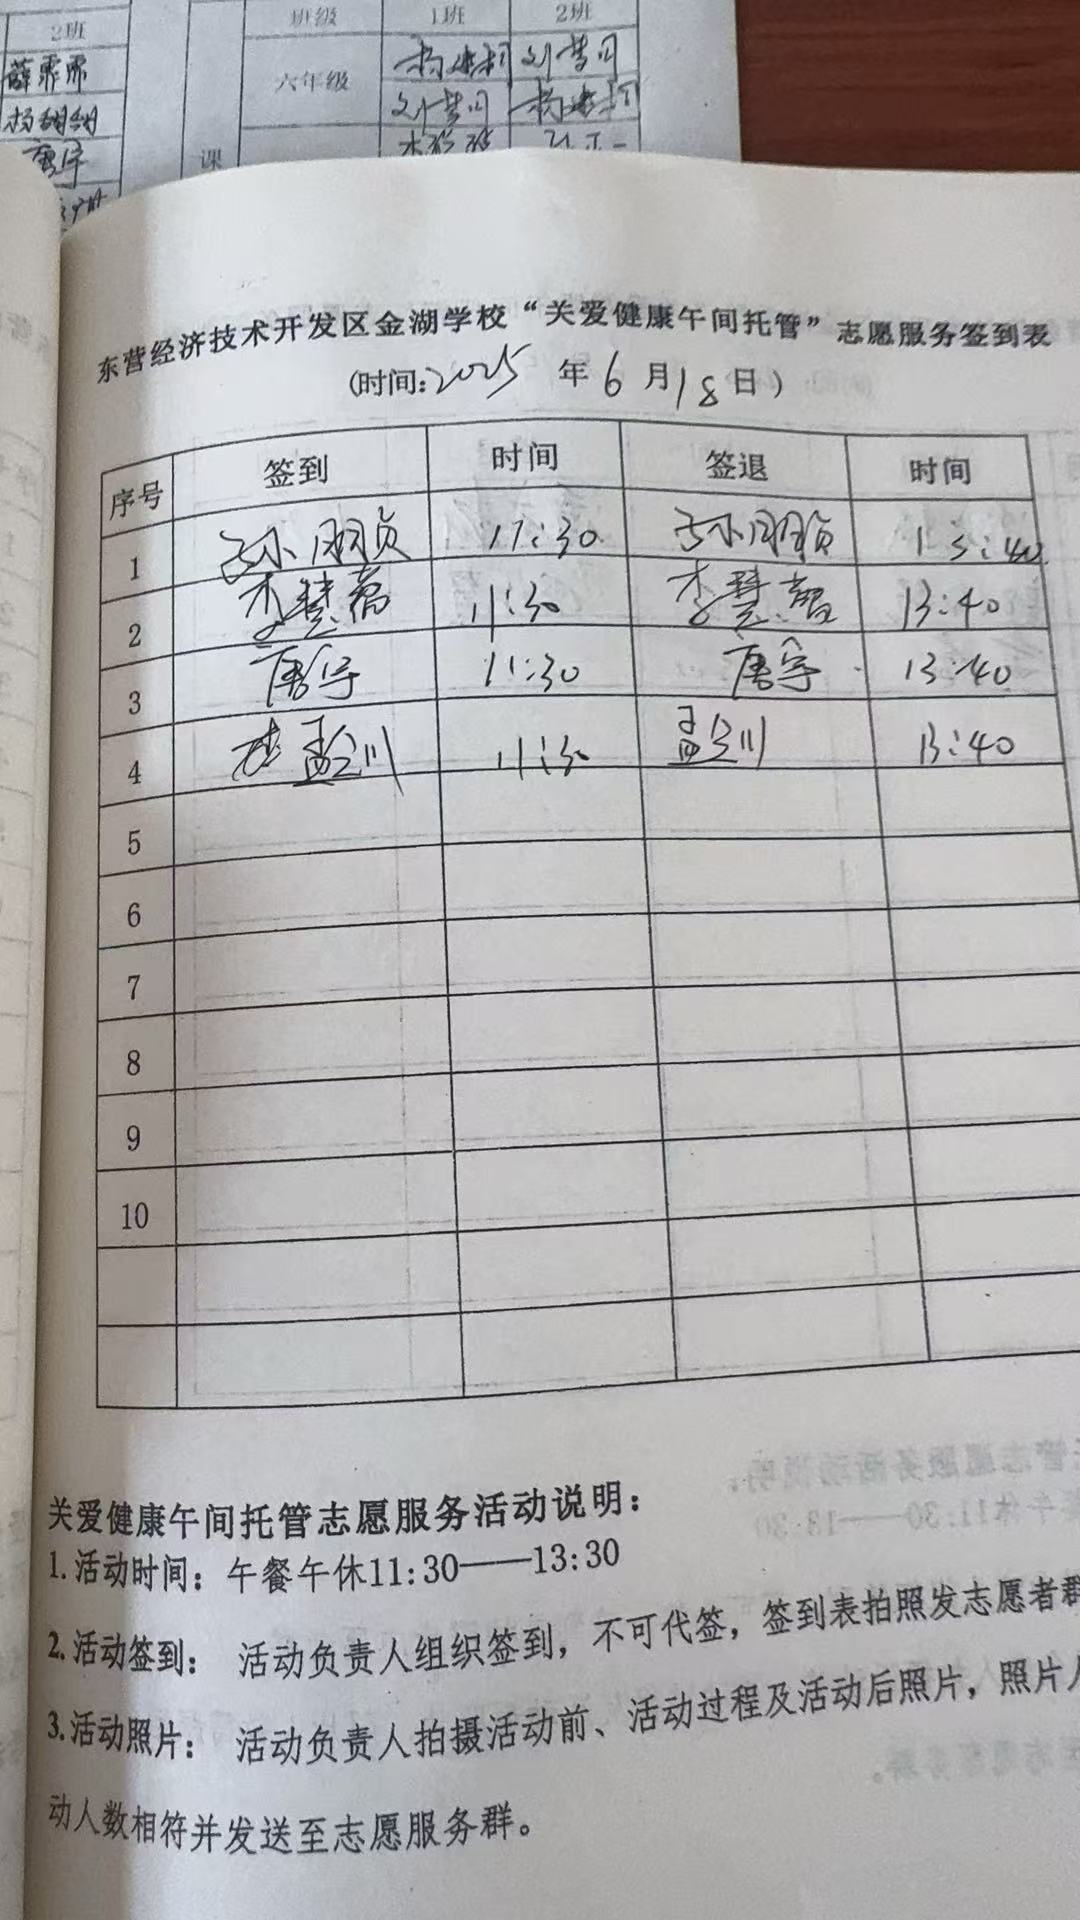 2班
班级 1班 2班
薛霏霏
六年级
杨甜甜
唐宇
课
东营经济技术开发区金湖学校“关爱健康午间托管”志愿服务签到表
(时间:2025 年 6 月 18 日)
序号 签到 时间 签退 时间
1 孙朋贞 11:30 孙朋贞 13:40
2 李慧 11:30 李慧 13:40
3 唐宇 11:30 唐宇 13:40
4 11:30 13:40
5
6
7
8
9
10
关爱健康午间托管志愿服务活动说明：
1.活动时间：午餐午休11:30——13:30
2.活动签到： 活动负责人组织签到，不可代签，签到表拍照发志愿者群
3.活动照片： 活动负责人拍摄活动前、活动过程及活动后照片，照片
动人数相符并发送至志愿服务群。